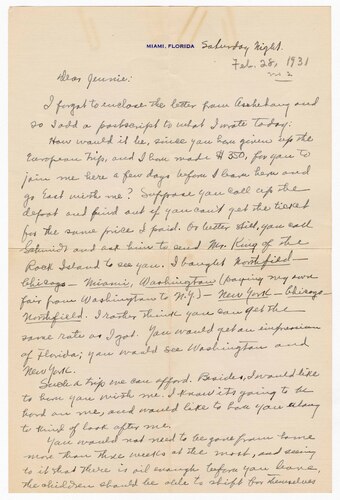 MIAMI, FLORIDA Saturday Night.
Feb. 28, 1931
Dear Jennie:
I forgot to enclose the letter from
so I add a postscript to what I wrote today:
How would it be, since you have given up the
European trip, and I have made $350, for you to
join me here a few days before I leave here and
go East with me? Suppose you call up the
depot and find out if you can't get the ticket
for the same price I paid. Or better still, you call
Schmidt and ask him to send Mr. King of the
Rock Island to see you. I bought Northfield—
Chicago— Miami, Washington (paying my own
fair from Washington to N.Y.)— New York— Chicago—
Northfield. I rather think you can get the
same rate as I got. You would get an impression
of Florida; you would see Washington and
New York.
Such a trip we can afford. Besides, I would like
to have you with me. I know it's going to be
hard on me, and would like to have you along
to kind of look after me.
You would not need to be gone from home
more than three weeks at the most, and seeing
to it that there is oil enough before you leave,
the children should be able to shift for themselves